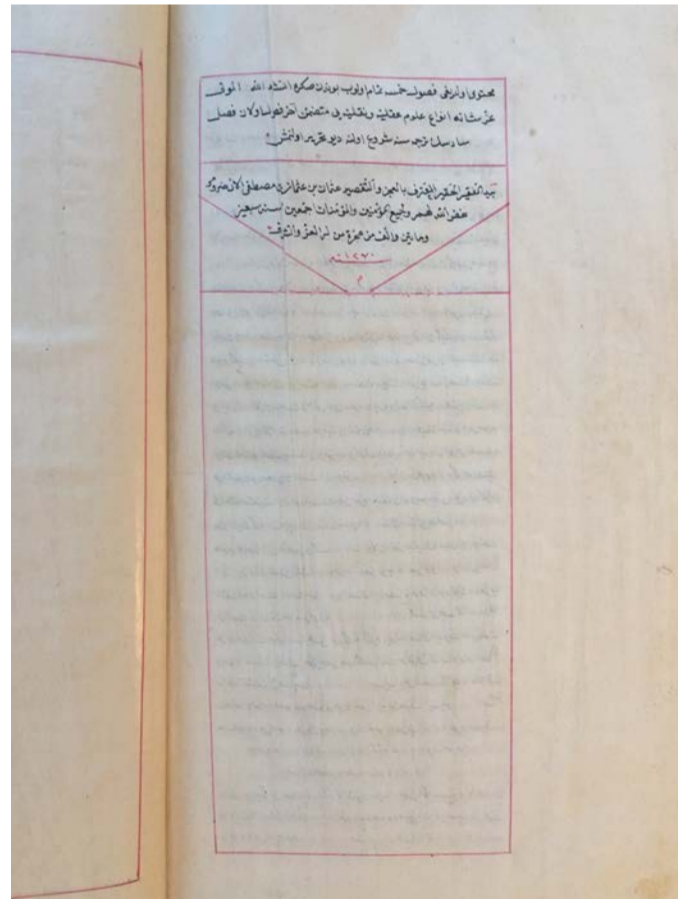 محتوى اولدیغی فصول خمسه تمام اولوب بوندن صکره انشاء الله الموفق
عز شانه انواع علوم عقلیه ونقلیه یی متضمن آخر فصول اولان فصل
سادسك ترجمه سنه شروع اولنه دیو تحریر اولنمش
الفقير الحقير المعترف بالعجز والتقصير عثمان بن مصطفى
غفر الله لهم ولجميع المؤمنين والمؤمنات اجمعين لسنة سبعين
ومايتين والف من هجرة من له العز والشرف
سنه ١٢٧٠
م